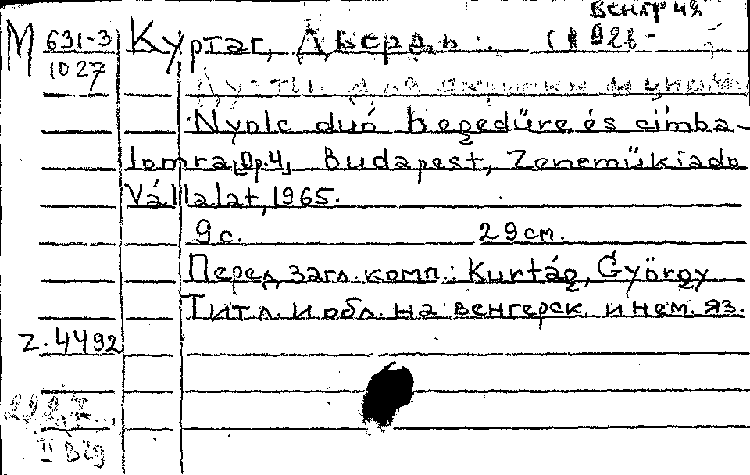 Венгр 49
М 631-3 Куртаг, Дьердь. (1926-
1027 Дуэты для скрипки и
Nyolc duó hegedűre és cimba-
lomra, Op. 4, Budapest, Zeneműkiadó
Vállalat, 1965.
9 с. 29 cm.
Перед загл. комп.: Kurtág, György
Титл. и обл. на венгерск. и нем. яз.
Z.4492
II